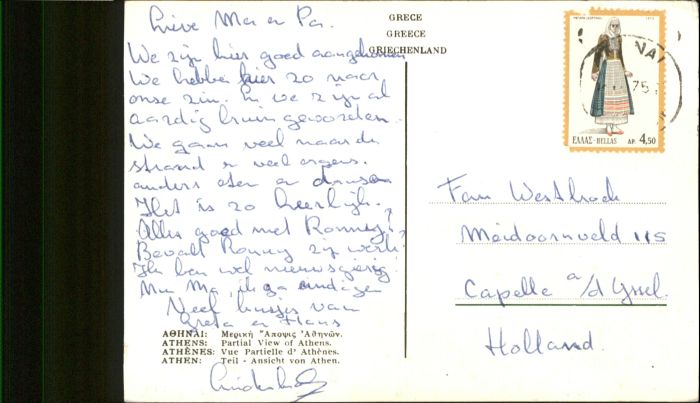 Lieve Ma en Pa.
We zijn hier goed aangekomen
We hebben hier zo naar
onze zin. En we zijn al
aardig bruin geworden.
We gaan veel naar de
strand en veel ergens
anders eten en dansen
Het is zo heerlijk.
Alles goed met Ronney?
Bevalt Ronny zij werk?
Ik ben wel nieuwsgierig
Nu Ma, ik ga eindigen
Veel kusjes van
Greta en Hans
ΑΘΗΝΑΙ: Μερικὴ Ἄποψις Ἀθηνῶν.
ATHENS: Partial View of Athens.
ATHÈNES: Vue Partielle d' Athènes.
ATHEN: Teil - Ansicht von Athen.
GRECE
GREECE
GRIECHENLAND
ΝΑΙ
75
ΕΛΛΑΣ-HELLAS ΔΡ. 4,50
Fam Westbroek
Meidoornveld 115
Capelle a/d Yssel.
Holland.